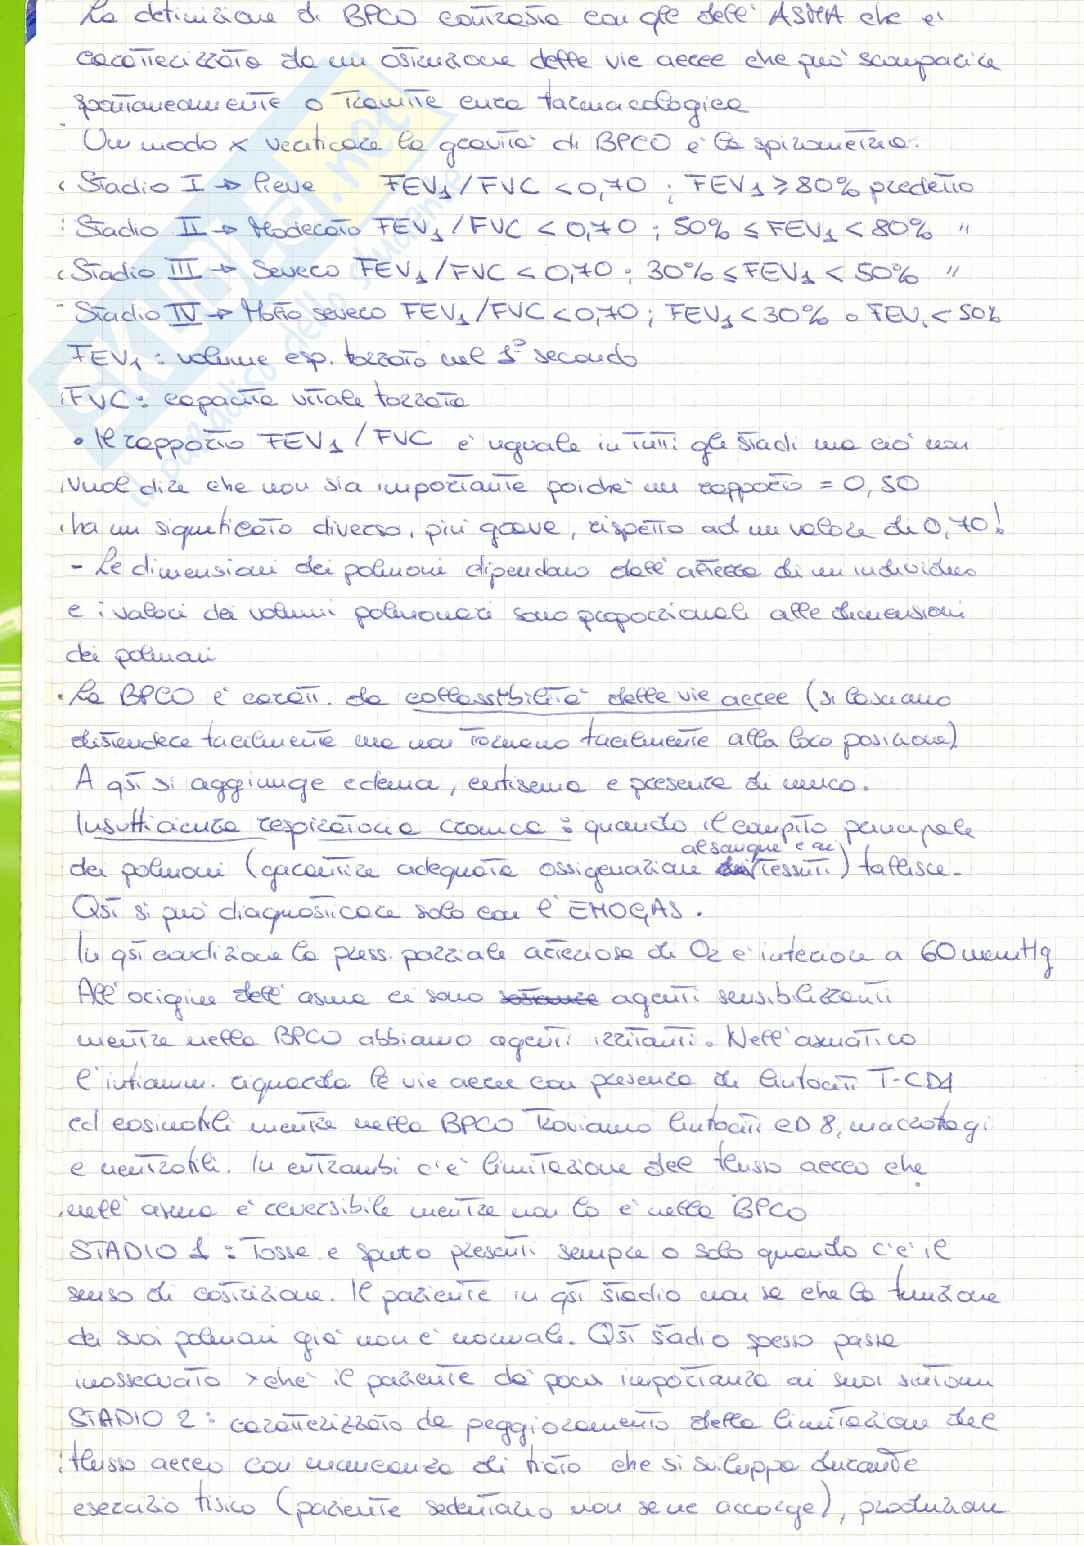 La definizione di BPCO contrasta con qlle dell' ASMA che è
caratterizzato da un ostruzione delle vie aeree che può scomparire
spontaneamente o tramite cura farmacologica
Un modo x verificare la gravità di BPCO è la spirometria.
Stadio I → lieve FEV1/FVC < 0,70 ; FEV1 ≥ 80% predetto
Stadio II → Moderato FEV1/FVC < 0,70 ; 50% ≤ FEV1 < 80% "
Stadio III → Severo FEV1/FVC < 0,70 ; 30% ≤ FEV1 < 50% "
Stadio IV → Molto severo FEV1/FVC < 0,70 ; FEV1 < 30% o FEV1 < 50%
FEV1 : volume esp. forzato nel 1° secondo
FVC : capacità vitale forzata
• Il rapporto FEV1/FVC è uguale in tutti gli stadi ma ciò non
vuol dire che non sia importante poiché un rapporto = 0,50
ha un significato diverso, più grave, rispetto ad un valore di 0,70!
- Le dimensioni dei polmoni dipendono dall' altezza di un individuo
e i valori dei volumi polmonari sono proporzionali alle dimensioni
dei polmoni
• La BPCO è caratt. da collassibilità delle vie aeree (si lasciano
distendere facilmente ma non tornano facilmente alla loro posizione)
A qsti si aggiunge edema, enfisema e presenza di muco.
Insufficienza respiratoria cronica : quando il compito principale
dei polmoni (garantire adeguata ossigenazione al sangue e ai tessuti) fallisce.
Qsti si può diagnosticare solo con l' EMOGAS.
In qsti condizione la press. parziale arteriosa di O2 è inferiore a 60 mmHg
All' origine dell' asma ci sono agenti sensibilizzanti
mentre nella BPCO abbiamo agenti irritanti. Nell' asmatico
l' infiamm. riguarda le vie aeree con presenza di linfociti T-CD4
ed eosinofili mentre nella BPCO troviamo linfociti CD8, macrofagi
e neutrofili. In entrambi c'è limitazione del flusso aereo che
nell' asma è reversibile mentre non lo è nella BPCO
STADIO 1 : Tosse e sputo presenti sempre o solo quando c'è il
senso di costrizione. Il paziente in qsti stadio non sa che la funzione
dei suoi polmoni già non è normale. Qsti stadio spesso passa
inosservato xché il paziente dà poca importanza ai suoi sintomi
STADIO 2 : caratterizzato da peggioramento della limitazione del
flusso aereo con mancanza di fiato che si sviluppa durante
esercizio fisico (paziente sedentario non se ne accorge), produzione
SKUOLA.net
il paradiso dello studente